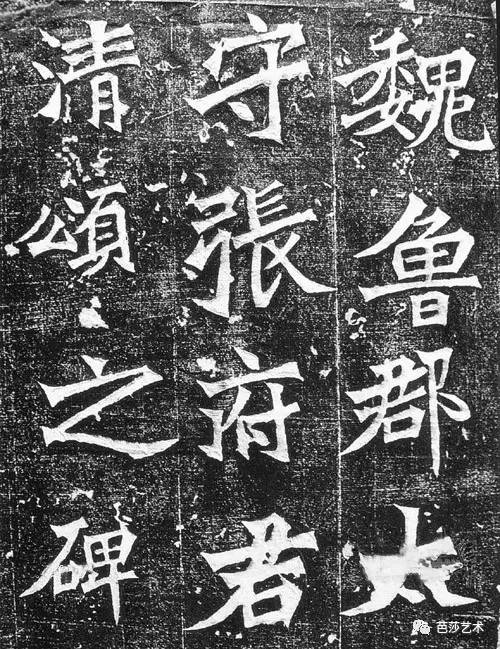 魏魯郡太
守張府君
清頌之碑
芭莎艺术